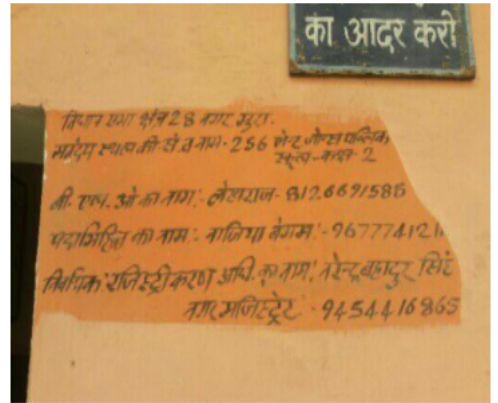 का आदर करो
विधान सभा क्षेत्र 28 नगर
मतदान स्थल की सं. व नाम - 256 सेन्ट जोन्स पब्लिक
स्कूल - कक्ष - 2
बी. एल. ओ का नाम : लेखराज - 812.6691586
पदाभिहित का नाम : नाजिया बेगम : - 967774121
रजिस्ट्रीकरण अधि. का नाम : नरेन्द्र बहादुर सिंह
नगर मजिस्ट्रेट - 9454416865